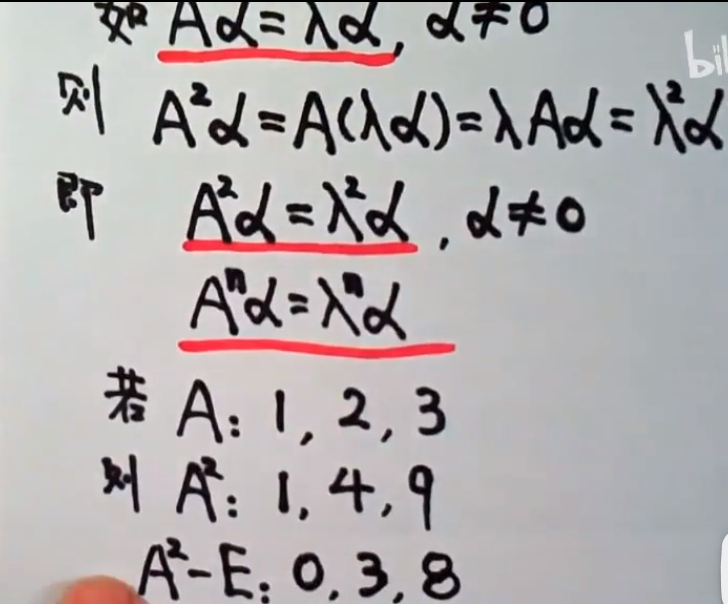 如 Aα=λα, α≠0
则 A²α=A(λα)=λAα=λ²α
即 A²α=λ²α, α≠0
Aⁿα=λⁿα
若 A: 1, 2, 3
则 A²: 1, 4, 9
A²-E: 0, 3, 8